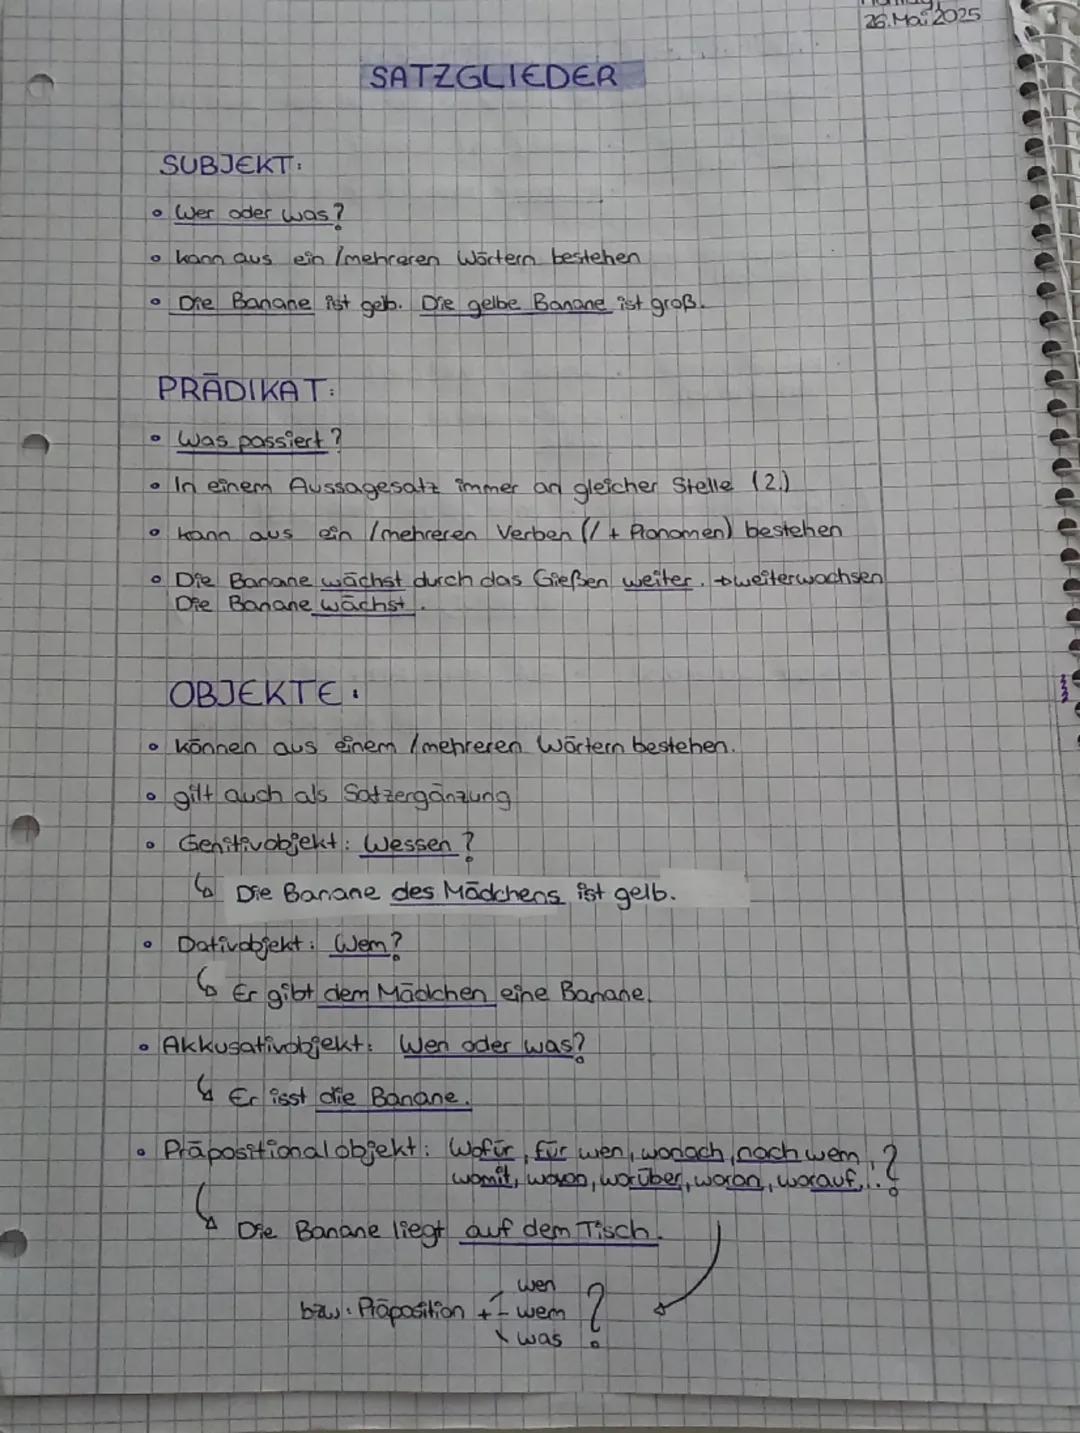 26. Mai 2025
SATZGLIEDER
SUBJEKT:
• Wer oder was?
• kann aus ein / mehreren Wörtern bestehen
• Die Banane ist gelb. Die gelbe Banane ist groß.
PRÄDIKAT:
• Was passiert?
• In einem Aussagesatz immer an gleicher Stelle (2.)
• kann aus ein / mehreren Verben (/ + Pronomen) bestehen
• Die Banane wächst durch das Gießen weiter. → weiterwachsen
Die Banane wächst.
OBJEKTE:
• können aus einem / mehreren Wörtern bestehen.
• gilt auch als Satzergänzung
• Genitivobjekt: Wessen?
↳ Die Banane des Mädchens ist gelb.
• Dativobjekt: Wem?
↳ Er gibt dem Mädchen eine Banane.
• Akkusativobjekt: Wen oder was?
↳ Er isst die Banane.
• Präpositionalobjekt: Wofür, für wen, wonach, nach wem,
womit, wovon, worüber, woran, worauf, ..?
↳ Die Banane liegt auf dem Tisch.
wen
bzw. Präposition + - wem ?
was